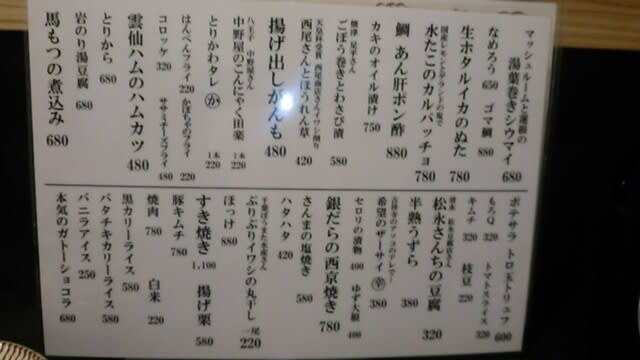 マッシュルームと蓮根の
湯葉巻きシウマイ 680
なめろう 650 ゴマ鯛 880
生ホタルイカのぬた 780
国産レモンとゲランドの塩で
水たこのカルパッチョ 780
鯛 あん肝ポン酢 880
カキのオイル漬け 750
焼津 是平さん
ごぼう巻きとわさび漬 580
天皇杯受賞 西尾商店さんイワシ削り
西尾さんとほうれん草 420
揚げ出しがんも 480
八王子 中野屋さん
中野屋のこんにゃく田楽 1本 220
とりかわタレ か 1本 220
はんぺんフライ 220 かぼちゃのフライ 220
コロッケ 320 ササミチーズフライ 480
雲仙ハムのハムカツ 480
とりから 680
岩のり湯豆腐 680
馬もつの煮込み 680
ポテサラ トロ玉トリュフ 600
もろQ 320 トマトスライス 320
キムチ 320 枝豆 220
松永さんちの豆腐 320
半熟うずら 380
吉祥寺のアソコのアレで!
希望のザーサイ 辛 380
セロリの漬物 400 ゆず大根 400
銀だらの西京焼き 780
さんまの塩焼き 580
ハタハタ 420
ぷりぷりイワシの丸干し 一尾 220
ほっけ 880
すき焼き 1,100 揚げ栗 580
豚キムチ 780
焼肉 780 白米 220
黒カリーライス 580
バタチキカリーライス 580
バニラアイス 250
本気のガトーショコラ 680